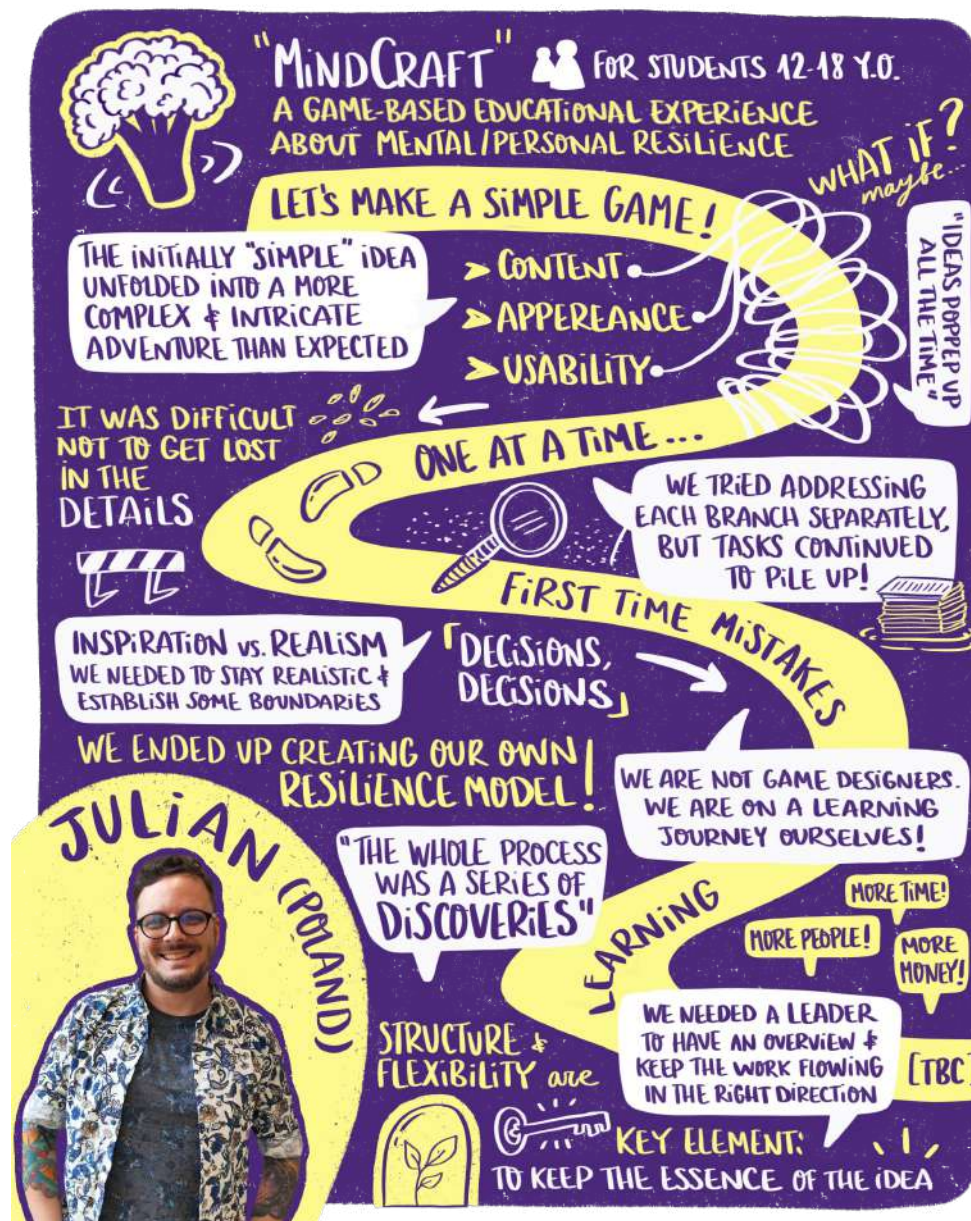 "MiNDCRAFT"
FOR STUDENTS 12-18 Y.O.
A GAME-BASED EDUCATIONAL EXPERIENCE
ABOUT MENTAL/PERSONAL RESILIENCE
WHAT IF?
maybe...
LET'S MAKE A SIMPLE GAME!
THE INITIALLY "SIMPLE" IDEA
UNFOLDED INTO A MORE
COMPLEX & INTRICATE
ADVENTURE THAN EXPECTED
> CONTENT
> APPEREANCE
> USABILITY
"IDEAS POPPED UP
ALL THE TIME"
IT WAS DIFFICULT
NOT TO GET LOST
IN THE
DETAILS
ONE AT A TIME...
WE TRIED ADDRESSING
EACH BRANCH SEPARATELY,
BUT TASKS CONTINUED
TO PILE UP!
FIRST TIME MISTAKES
INSPIRATION vs. REALISM
WE NEEDED TO STAY REALISTIC &
ESTABLISH SOME BOUNDARIES
「DECISIONS,
DECISIONS」
WE ENDED UP CREATING OUR OWN
RESILIENCE MODEL!
WE ARE NOT GAME DESIGNERS.
WE ARE ON A LEARNING
JOURNEY OURSELVES!
JULIAN (POLAND)
"THE WHOLE PROCESS
WAS A SERIES OF
DISCOVERIES"
LEARNING
MORE TIME!
MORE PEOPLE!
MORE
MONEY!
WE NEEDED A LEADER
TO HAVE AN OVERVIEW &
KEEP THE WORK FLOWING
IN THE RIGHT DIRECTION
[TBC]
STRUCTURE &
FLEXIBILITY are
KEY ELEMENT:
TO KEEP THE ESSENCE OF THE IDEA